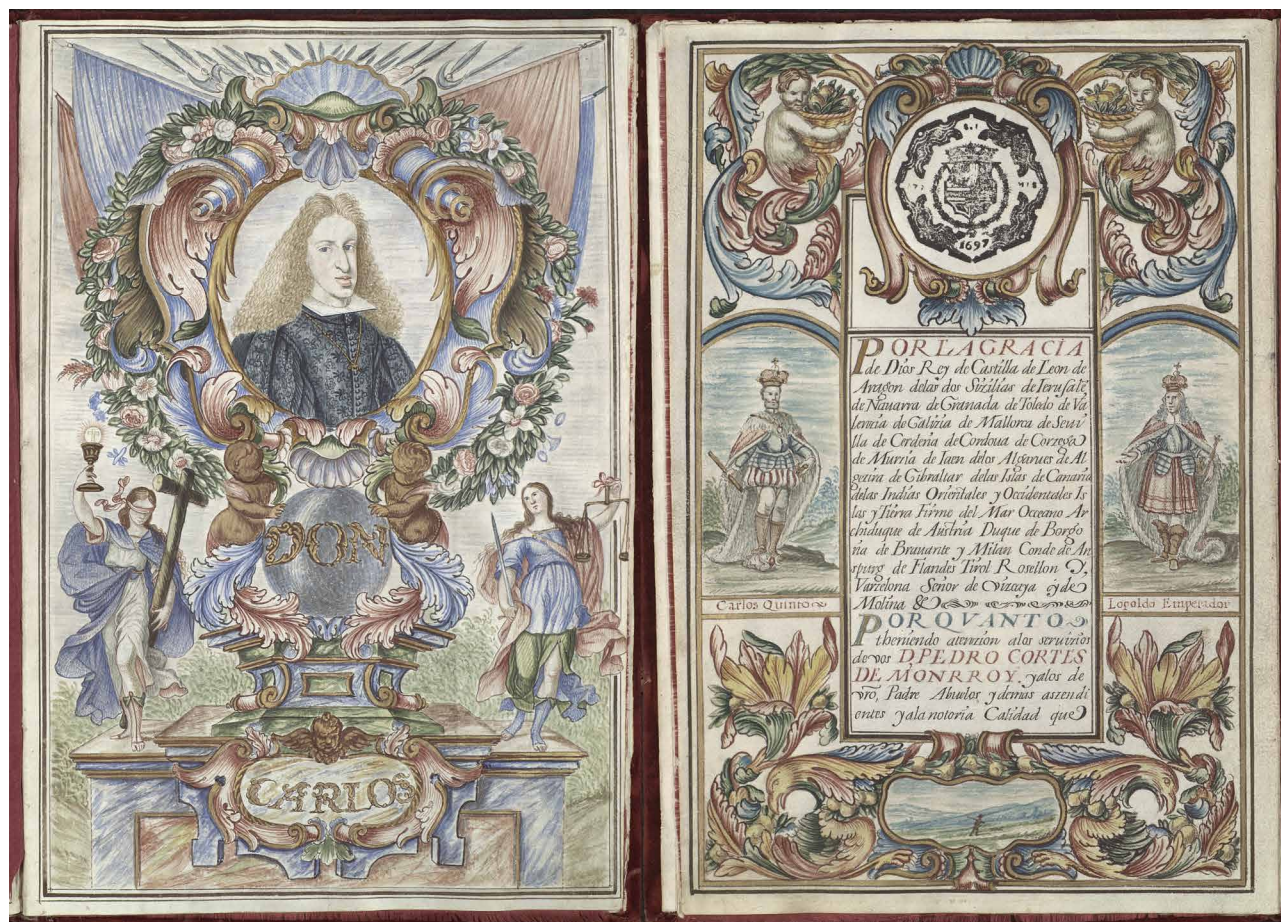 2
DON
CARLOS
1697
POR LA GRACIA
de Dios Rey de Castilla de Leon de
Aragon delas dos Sizilias de Ierusalē
de Nauarra de Granada de Toledo de Va
lencia de Galizia de Mallorca de Sevi
lla de Cerdeña de Cordoua de Corzega
de Murzia de Iaen delos Algarues de Al
gezira de Gibraltar delas Islas de Canaria
delas Indias Orientales y Occidentales Is
las y Tierra Firme del Mar Occeano Ar
chiduque de Austria Duque de Borgo
ña de Brauante y Milan Conde de
de Flandes Tirol Rosellon Y,
Varzelona Señor de Vizcaya y de
Molina &
POR QVANTO
theniendo atenzion alos seruizios
de vos D, PEDRO CORTES
DE MONRROY, yalos de
vrō, Padre Abuelos y demas aszendi
entes yala notoria Calidad que
Carlos Quinto
Lepoldo Emperador